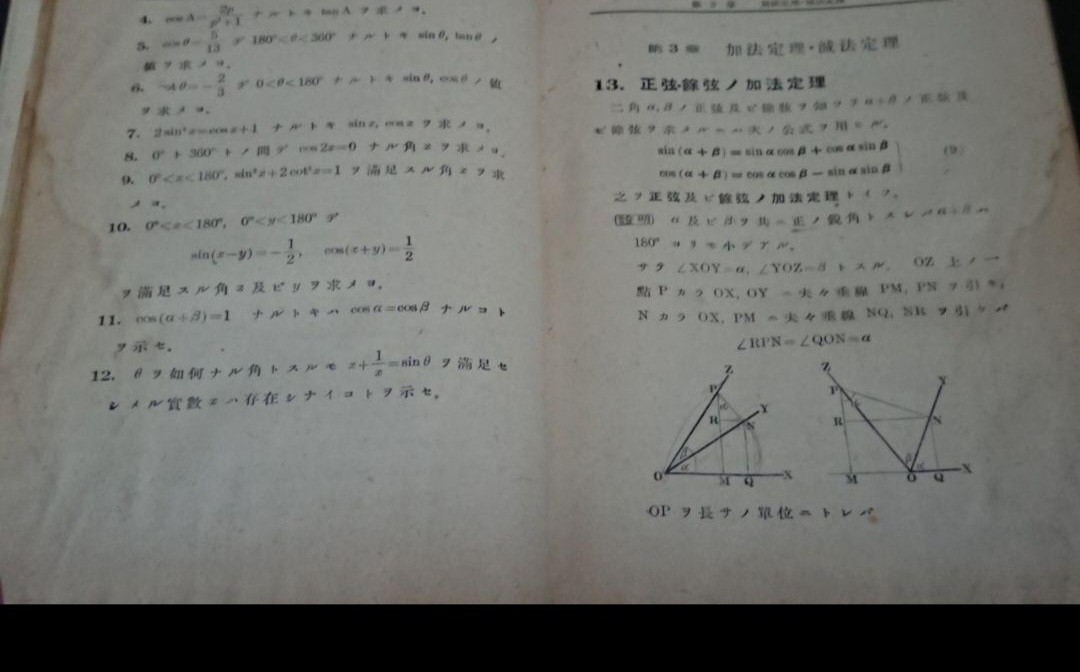 4. cosA=2p/p²+1 ナルトキ tanA ヲ求メヨ。
5. cosθ=5/13 デ 180°<θ<360° ナルトキ sinθ, tanθ ノ
値ヲ求メヨ。
6. θ=-2/3 デ 0<θ<180° ナルトキ sinθ, cosθ ノ値
ヲ求メヨ。
7. 2sin²x=cosx+1 ナルトキ sinx, cosx ヲ求メヨ。
8. 0° ト 360° トノ間デ cos2x=0 ナル角xヲ求メヨ。
9. 0°<x<180°, sin²x+2cot²x=1 ヲ滿足スル角xヲ求
メヨ。
10. 0°<x<180°, 0°<y<180° デ
sin(x-y)=-1/2, cos(x+y)=1/2
ヲ滿足スル角x及ビyヲ求メヨ。
11. cos(α+β)=1 ナルトキハ cosα=cosβ ナルコト
ヲ示セ。
12. θヲ如何ナル角トスルモ x+1/x=sinθ ヲ滿足セ
シメル實數xハ存在シナイコトヲ示セ。
第3章
第3章 加法定理・減法定理
13. 正弦・餘弦ノ加法定理
二角α,βノ正弦及ビ餘弦ヲ知ツテα+βノ正弦及
ビ餘弦ヲ求メルニハ次ノ公式ヲ用ヒル。
sin(α+β)=sinαcosβ+cosαsinβ
cos(α+β)=cosαcosβ-sinαsinβ (9)
之ヲ正弦及ビ餘弦ノ加法定理トイフ。
(證明) α及ビβヲ共ニ正ノ鋭角トスレバα+βハ
180°ヨリモ小デアル。
サテ ∠XOY=α, ∠YOZ=β トスル. OZ上ノ一
點PカラOX, OYニ夫々垂線PM, PNヲ引キ,
NカラOX, PMニ夫々垂線NQ, NRヲ引ケバ
∠RPN=∠QON=α
Z P α R N Y β α O M Q X
Z P α R N Y β α M O Q X
OPヲ長サノ單位ニトレバ